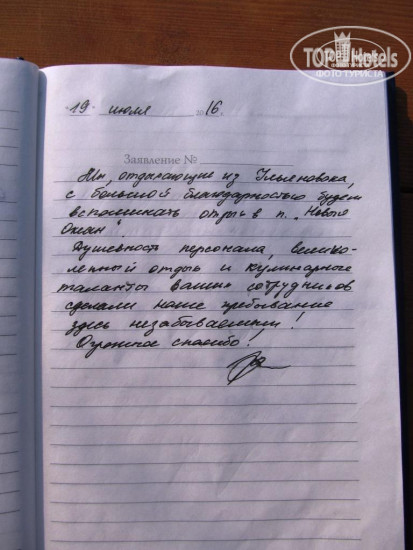 TOP Hotels
ФОТО ТУРИСТА
"19" июля 2016 г.
Заявление №
Мы, отдыхающие из Ульяновска,
с большой благодарностью будем
вспоминать отдых в п. „Новый
Океан".
Душевность персонала, велико-
лепный отдых и кулинарные
таланты ваших сотрудников
сделали наше пребывание
здесь незабываемым!
Огромное спасибо!